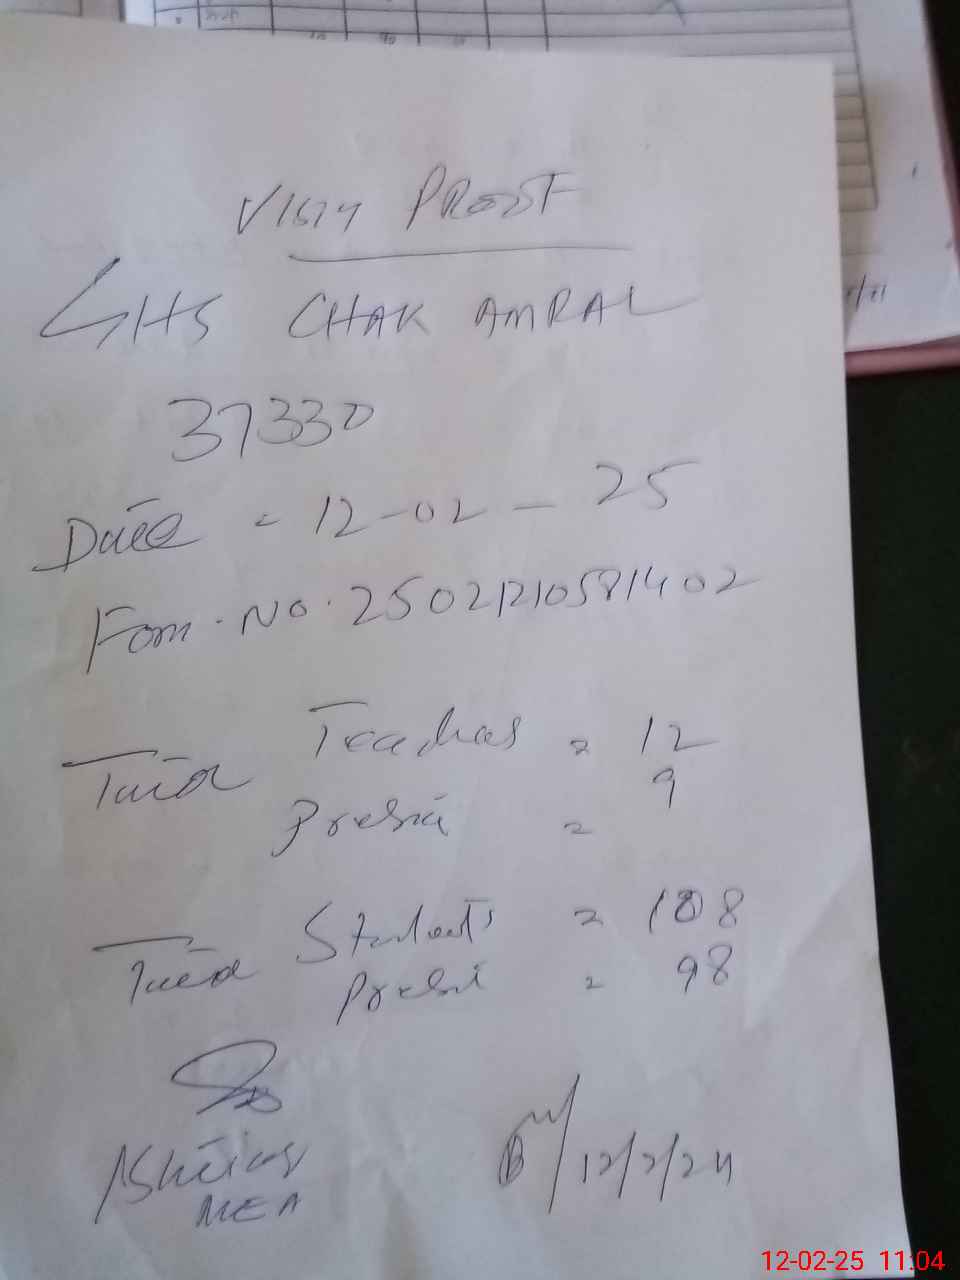 VISIT PROOF
GHS CHAK AMRAL
37330
Date = 12-02-25
Form. No. 25021210581402
Total Teachers = 12
Present = 9
Total Students = 108
Present = 98
MEA
12/2/24
12-02-25 11:04